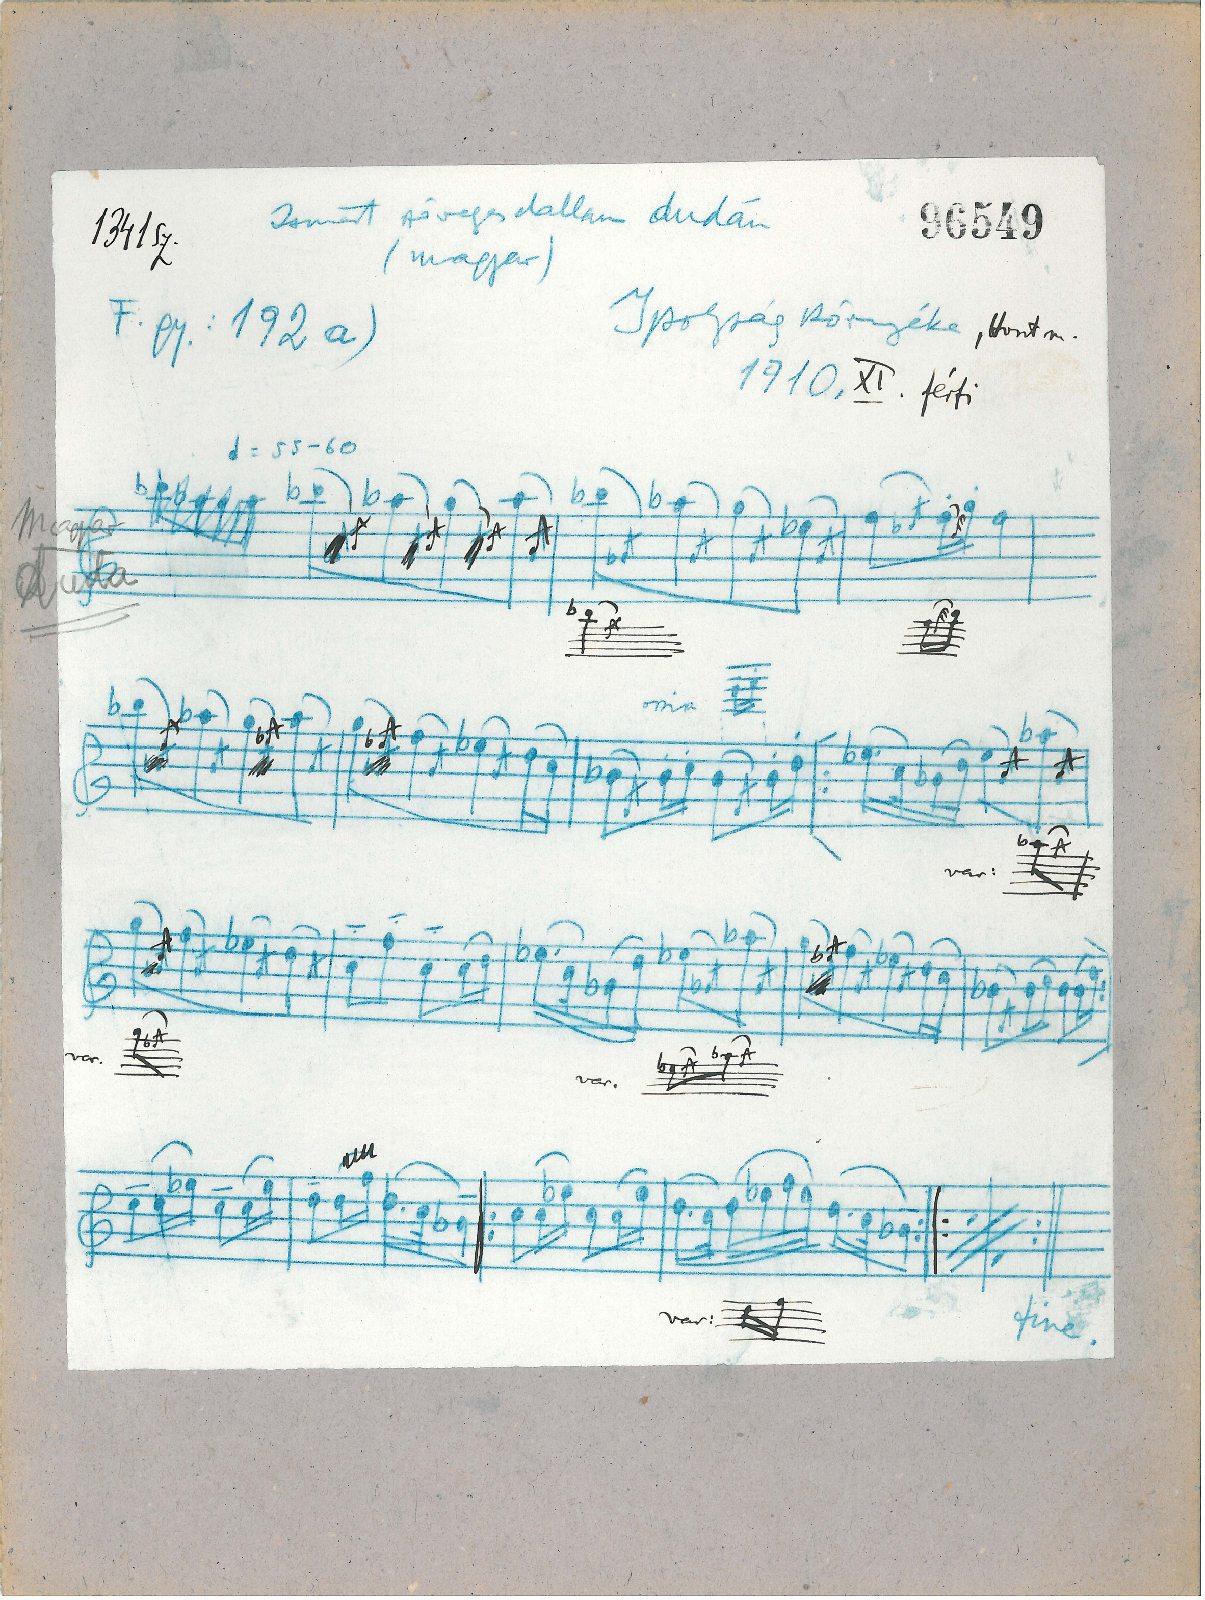 1341 sz.
Ismert szöveges dallam dudán
96549
(magyar)
F. gy.: 192 a)
Ipolyság környéke, Hont m.
1910. XI. férfi
= 55-60
Magyar
Duda
ossia
var:
var.
var.
var:
fine.